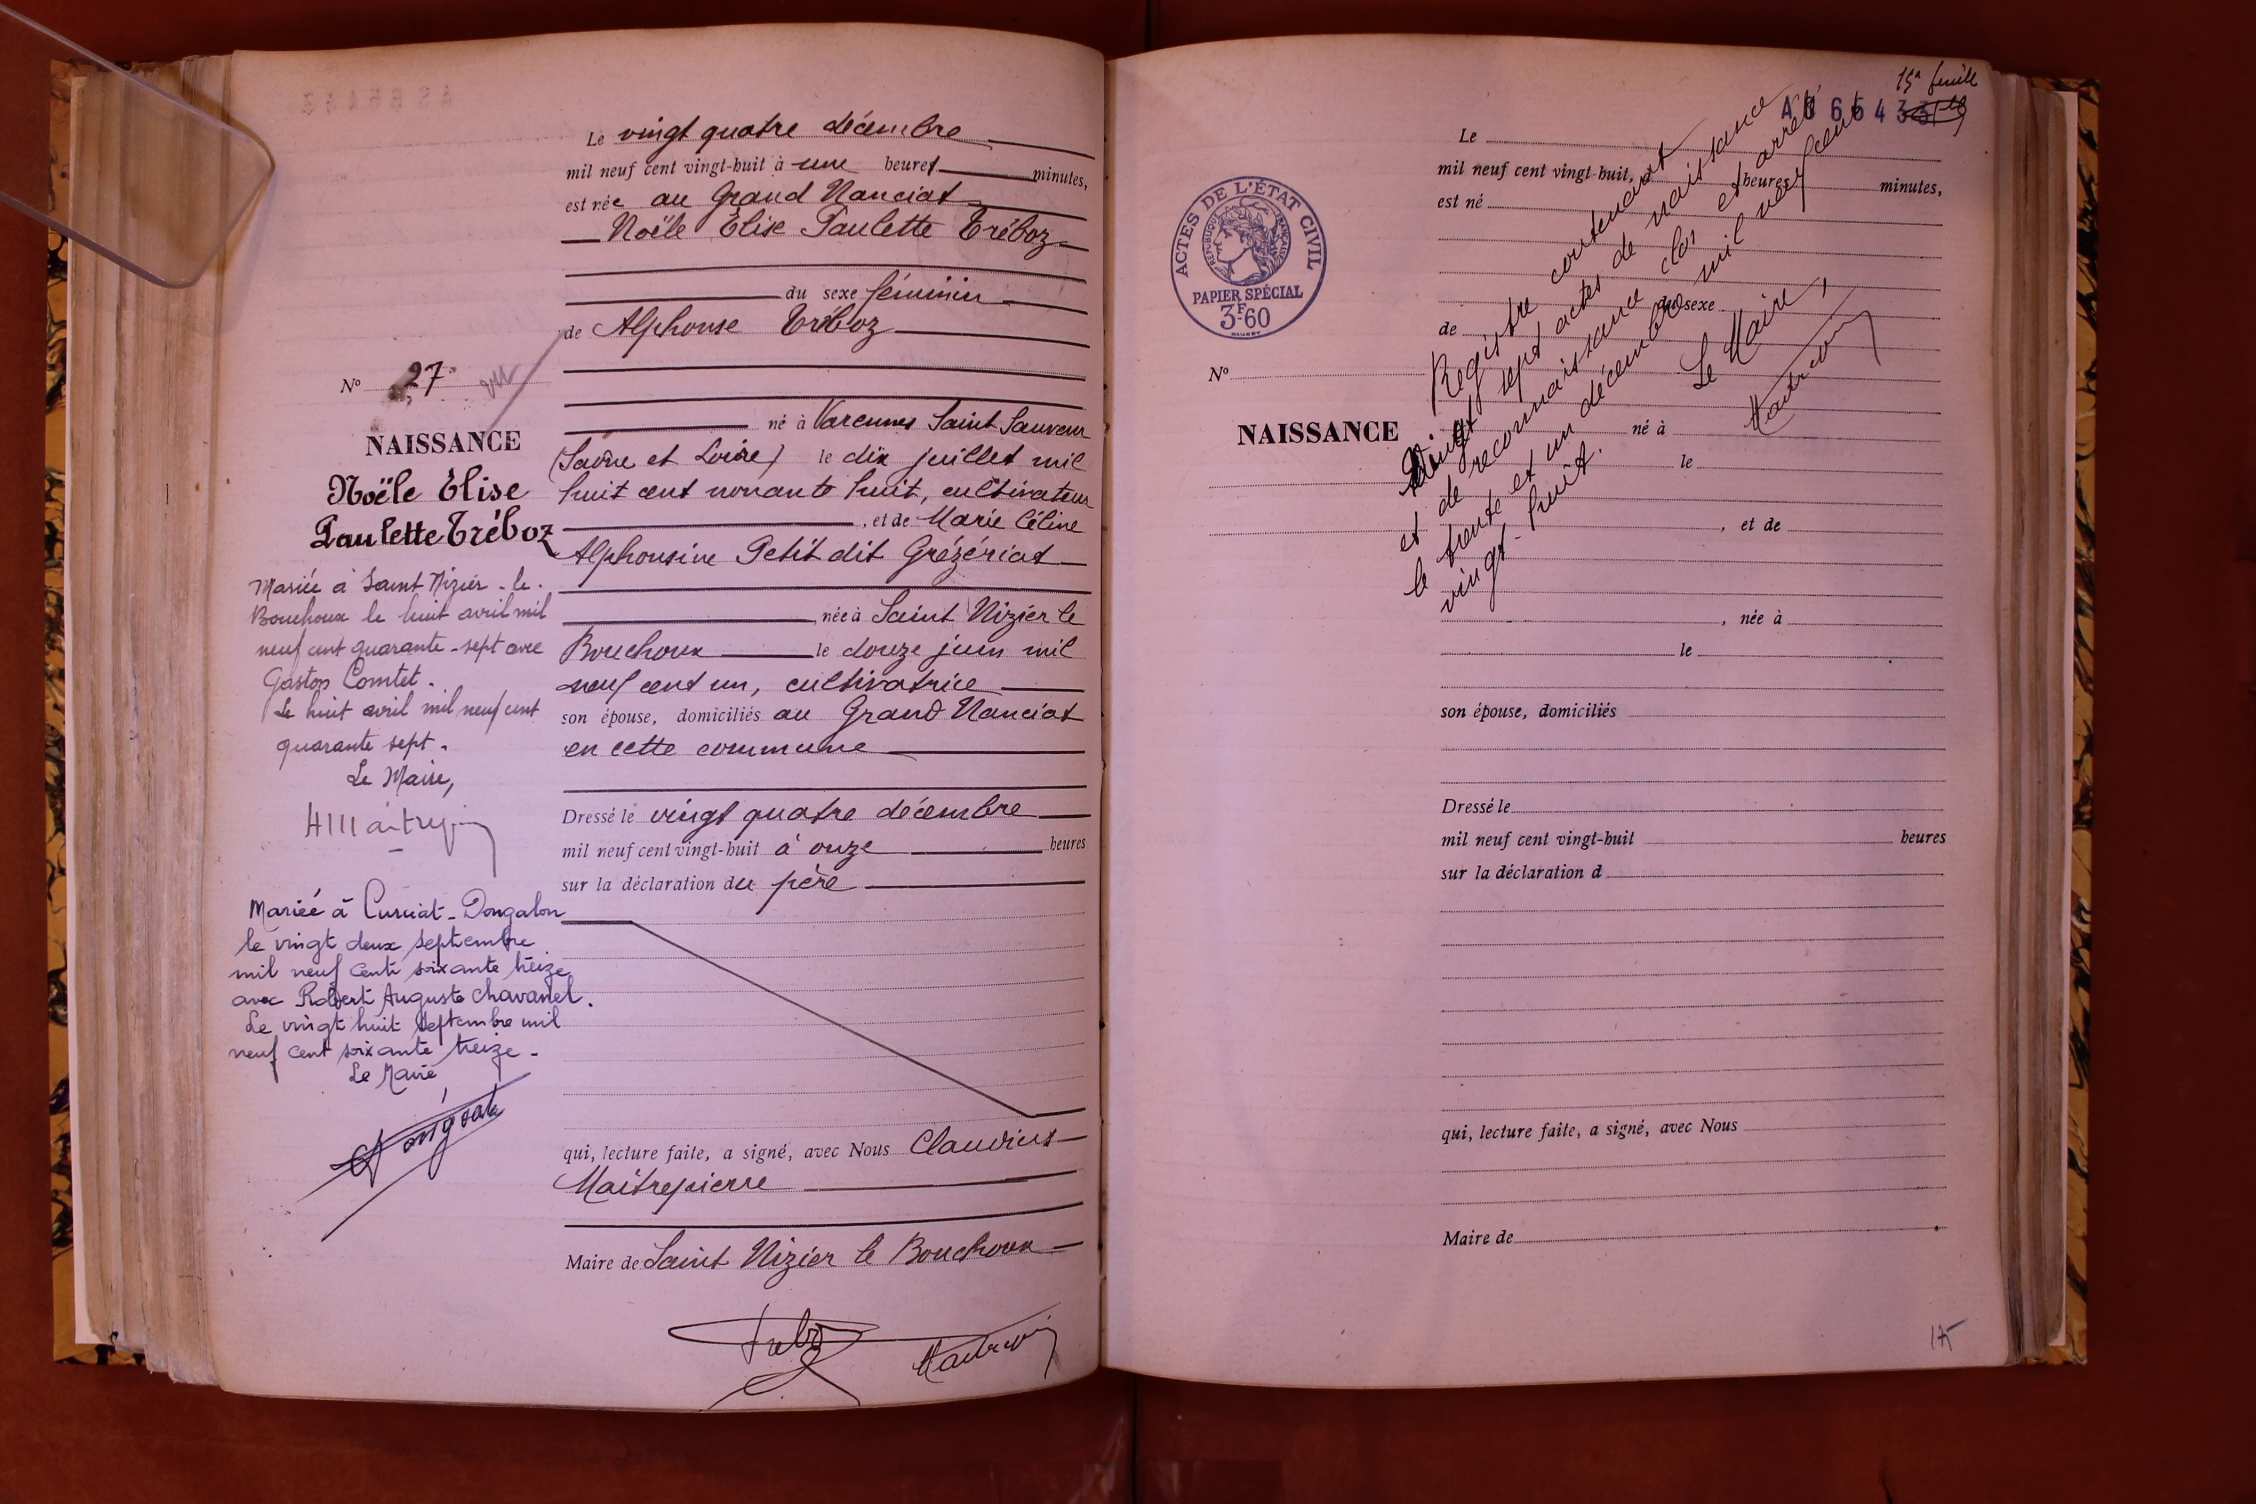 Le vingt quatre décembre
mil neuf cent vingt-huit à une heures minutes,
est née au Grand Nanciat
Noële Élise Paulette Tréboz
du sexe féminin
de Alphonse Tréboz
né à Varennes Saint Sauveur
(Saône et Loire) le dix juillet mil
huit cent nonante huit, cultivateur
, et de Marie Céline
Alphonsine Petit dit Grézériat
née à Saint Nizier le
Bouchoux le douze juin mil
neuf cent un, cultivatrice
son épouse, domiciliés au Grand Nanciat
en cette commune
Dressé le vingt quatre décembre
mil neuf cent vingt-huit à onze heures
sur la déclaration du père
qui, lecture faite, a signé, avec Nous Claudius
Maitrepierre
Maire de Saint Nizier le Bouchoux
Nº 27
NAISSANCE
Noële Élise
Paulette Tréboz
Mariée à Saint Nizier-le-
Bouchoux le huit avril mil
neuf cent quarante-sept avec
Gaston Comtet.
Le huit avril mil neuf cent
quarante sept.
Le Maire,
Mariée à Curciat-Dongalon
le vingt deux septembre
mil neuf cent soixante treize
avec Robert Auguste Chavanel.
Le vingt huit septembre mil
neuf cent soixante treize-
Le Maire
15e feuille
ACTES DE L'ÉTAT CIVIL
RÉPUBLIQUE FRANÇAISE
PAPIER SPÉCIAL
3F-60
Le
mil neuf cent vingt-huit, à heures minutes,
est né
du sexe
de
Nº
NAISSANCE
né à
le
, et de
, née à
le
son épouse, domiciliés
Dressé le
mil neuf cent vingt-huit heures
sur la déclaration d
qui, lecture faite, a signé, avec Nous
Maire de
Registre contenant
vingt sept actes de naissance
et de reconnaissance clos et arrêté
le trente et un décembre mil neuf cent
vingt-huit.
Le Maire,
175